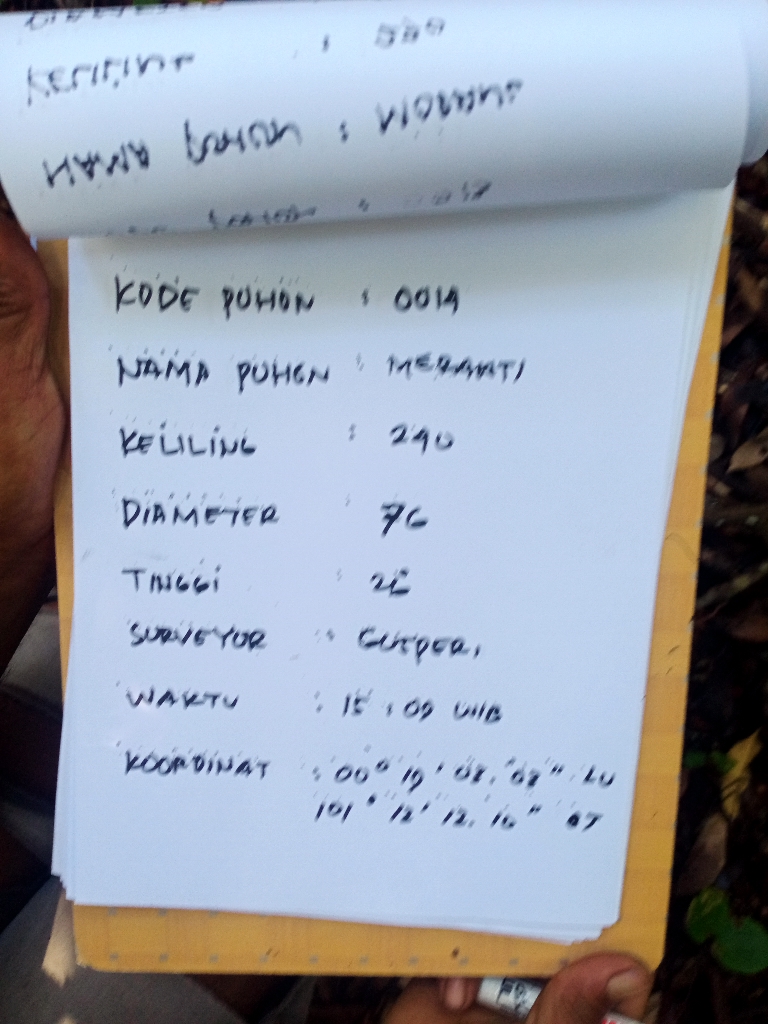 KELILING : 
NAMA POHON : 
KODE POHON : 0014
NAMA POHON : MERANTI
KELILING : 240
DIAMETER : 76
TINGGI :
SURVEYOR :
WAKTU : 15 : 09 WIB
KOORDINAT : 00° 19' 08. 08" LU
101° 12' 12. 16" BT